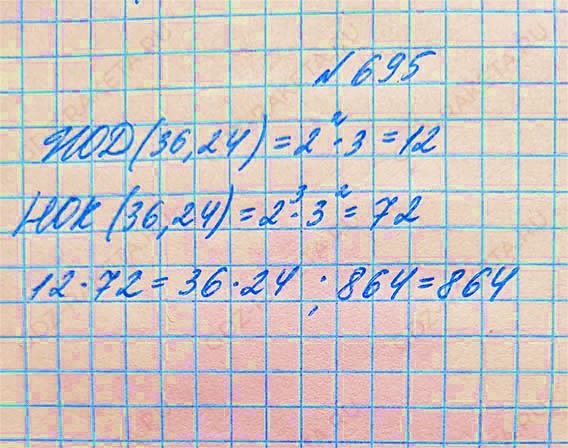 № 695
НОД (36,24) = 2² · 3 = 12
НОК (36,24) = 2³ · 3² = 72
12 · 72 = 36 · 24 ; 864 = 864